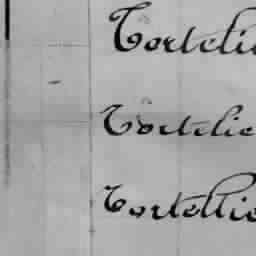 Tortelie
Tortelie
Tortellie